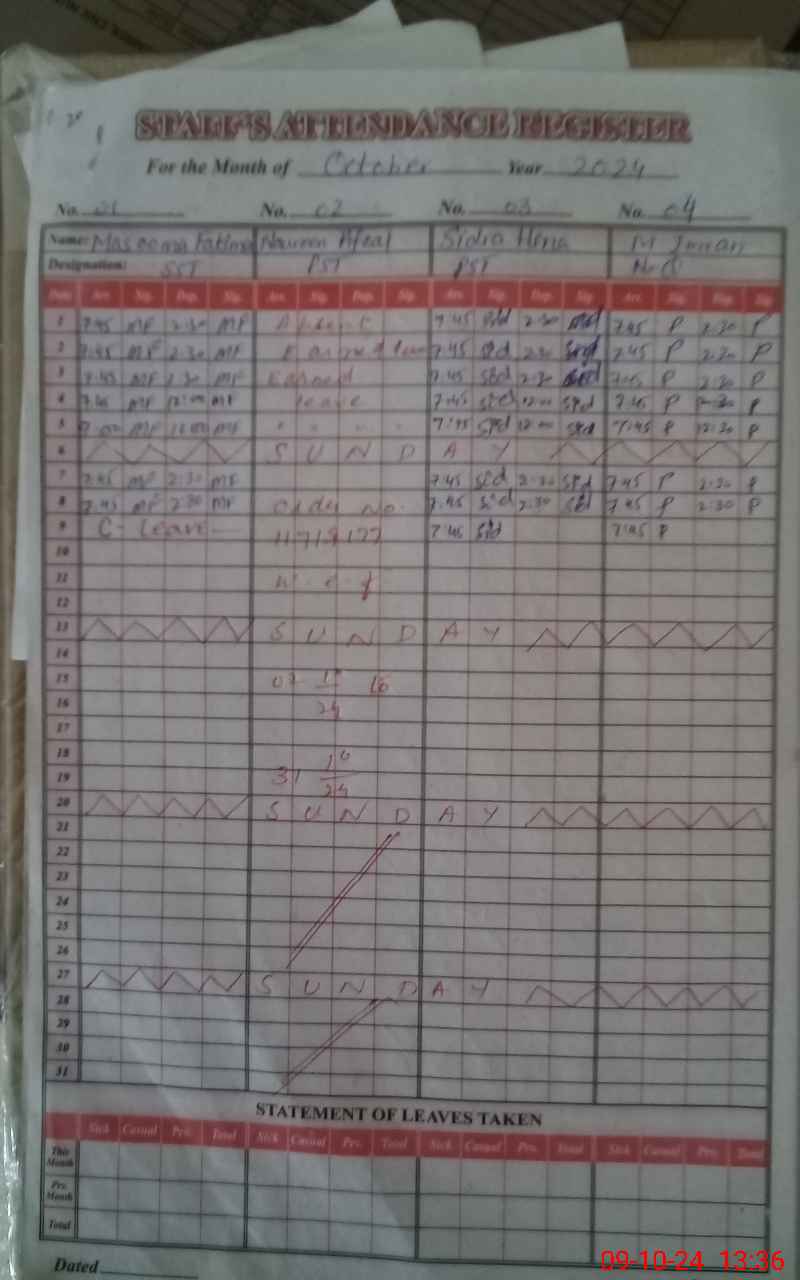 STAFF'S ATTENDANCE REGISTER
For the Month of October Year 2024
No. 01 No. 02 No. 03 No. 04
Name: Masooma Fatima Nauren Afzal Sidra Hena M
Designation: SST PST PST
Date Arr. Sig. Dep. Sig. Arr. Sig. Dep. Sig. Arr. Sig. Dep. Sig. Arr. Sig. Dep. Sig.
1 7:45 MF 2:30 MF Absent 7:45 2:30 7:45 P 2:30 P
2 7:45 MF 2:30 MF 7:45 2:30 7:45 P 2:30 P
3 7:45 MF 2:30 MF Earned 7:45 2:30 7:45 P 2:30 P
4 7:45 MF 12:00 MF leave 7:45 12:00 7:45 P P
5 MF MF " " " " 7:45 12:00 7:45 P 12:30 P
6 S U N D A Y
7 7:45 MF 2:30 MF 7:45 2:30 7:45 P 2:30 P
8 7:45 MF 2:30 MF Order No. 7:45 2:30 7:45 P 2:30 P
9 C- Leave 7:45 7:45 P
10
11 w. e. f
12
13 S U N D A Y
14
15
16
17
18
19
20 S U N D A Y
21
22
23
24
25
26
27 S U N D A Y
28
29
30
31
STATEMENT OF LEAVES TAKEN
Sick Casual Prv. Total Sick Casual Prv. Total Sick Casual Prv. Total Sick Casual Prv. Total
This Month
Prv. Month
Total
Dated
09-10-24 13:36